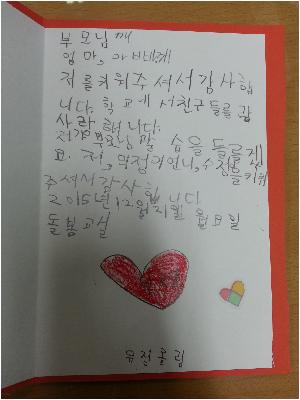 부모님께
엄마, 아빠에게
저를키워주셔서감사합
니다. 학교에서친구들을
사랑해니다.
저가 부모님 말 씀을 들를게
요. 저, 언니, 수정을키워
주셔서감사합니다
2015년12월21일 월요일
돌봄교실
유정올림